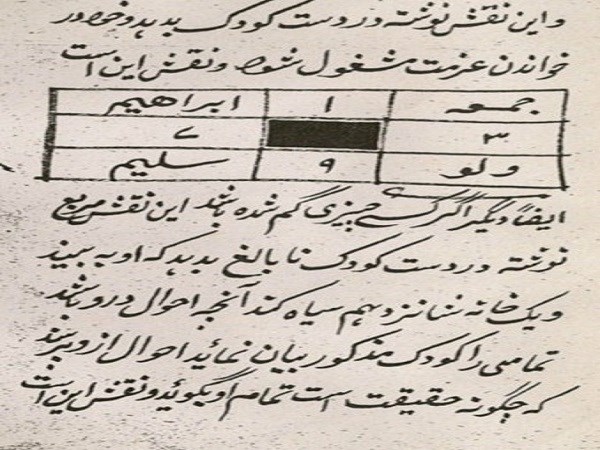 و این نقش نوشته در دست کودک بدهد و خود در
خواندن عزیمت مشغول شود و نقش این است
جمعه ۱ ابراهیم
۳ ۷
ولو ۹ سلیم
ایضاً دیگر اگر کسے چیزی گم شده باشد این نقش مربع
نوشته در دست کودک نا بالغ بدهد که او به بیند
و یک خانه شانزدهم سیاه کند آنچه احوال در و باشد
تمامی را کودک مذکور بیان نماید احوال از و پرسند
که چگونه حقیقت است تمام او بگوید و نقش این است